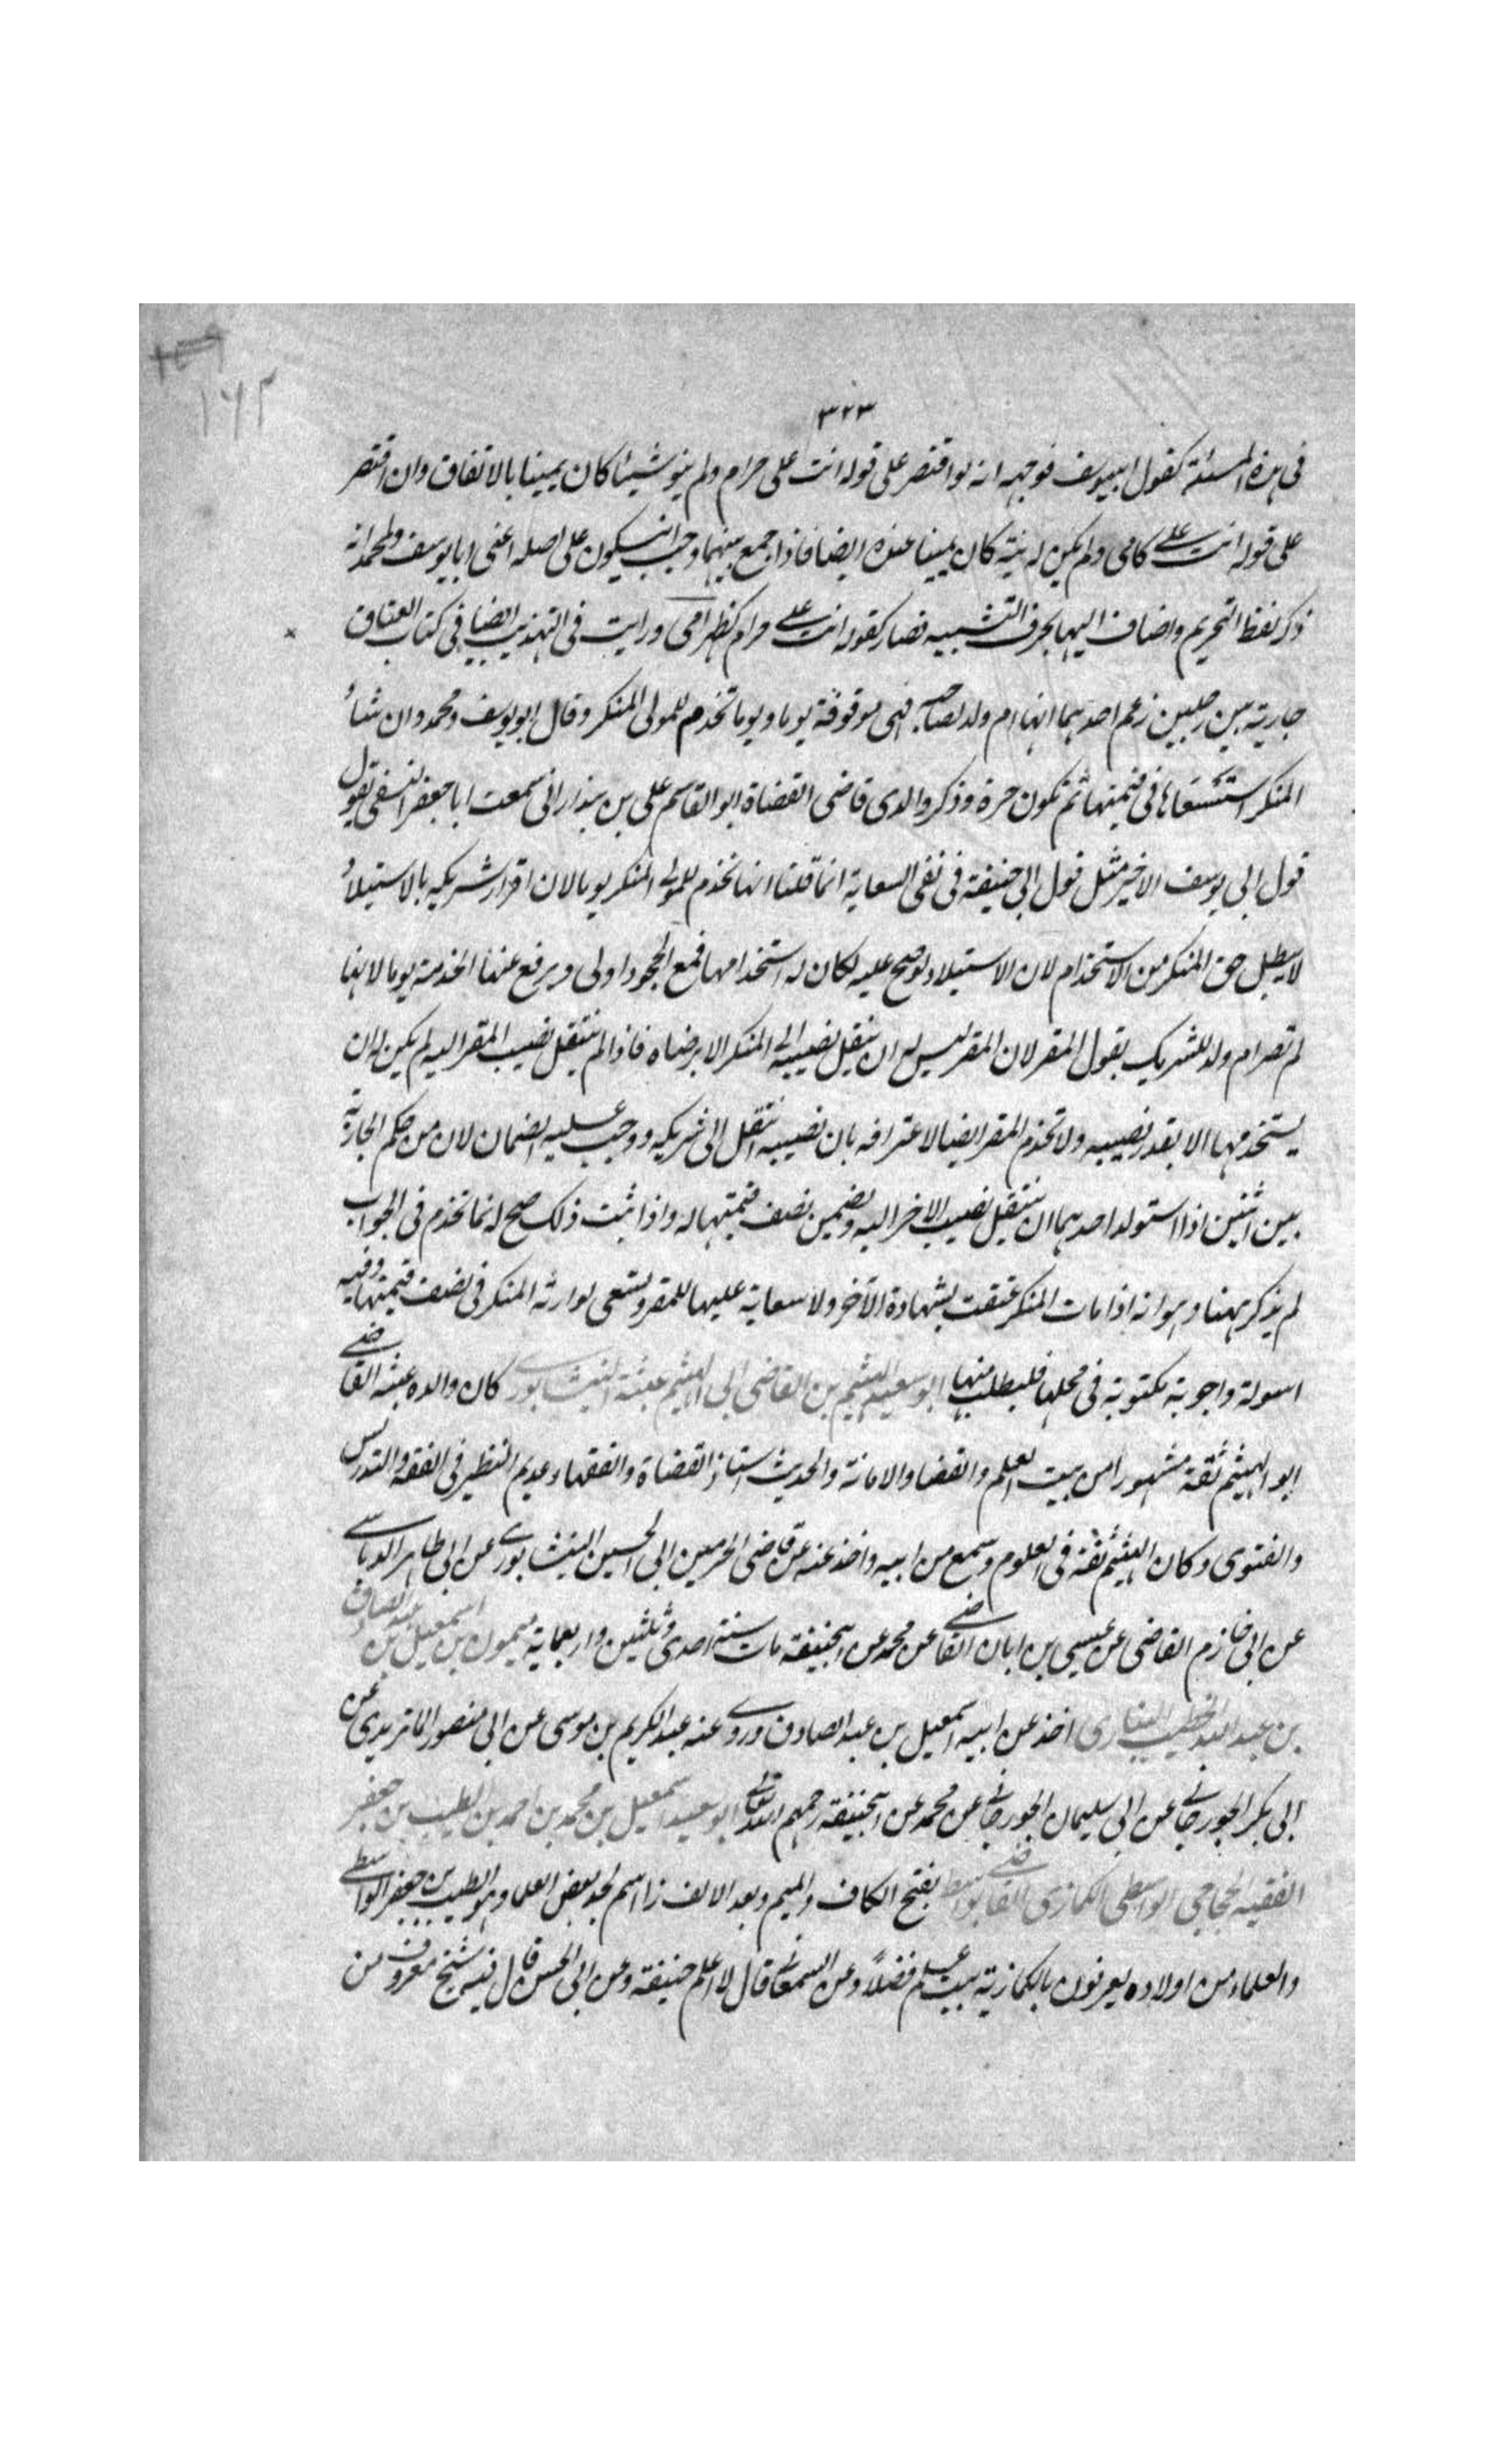 ١٦٢
٣٢٣
فى هذه المسئلة كقول ابيوسف فوجهه انه لو اقتصر على قوله انت على حرام ولم ينو شيئا كان يمينا بالاتفاق وان اقتصر
على قوله انت على كامى ولم يكن له نية كان يمينا عنده ايضا فاذا جمع بينهما وجب ان يكون على اصله اعنى ابا يوسف ولمحمد انه
ذكر لفظ التحريم واضاف اليها بحرف التشبيه فصار كقوله انت على حرام كظهر امى ورايت فى التهذيب ايضا فى كتاب العتاق
جارية بين رجلين زعم احدهما انها ام ولد لصاحبه فهى موقوفة يوما ويوما تخدم للمولى المنكر وقال ابو يوسف ومحمد وان شاء
المنكر استسعاها فى قيمتها ثم تكون حرة وذكر والدى قاضى القضاة ابو القاسم على بن بندار انى سمعت ابا جعفر النسفى يقول
قول ابى يوسف الاخير مثل قول ابى حنيفة فى نفى السعاية انما قلنا انها تخدم للمولى المنكر يوما لان اقرار شريكه بالاستيلاء
لا يبطل حق المنكر من الاستخدام لان الاستيلاد لو صح عليه لكان له استخدامها فمع الجحود اولى ويرفع عنها الخدمة يوما لانها
لم تصر ام ولد للشريك بقول المقر لان المقر ليس له ان ينقل نصيبه الى المنكر الا برضاه فاذا لم ينتقل نصيب المقر اليه لم يكن له ان
يستخدمها الا بقدر نصيبه ولا تخدم المقر ايضا لاعترافه بان نصيبه انتقل الى شريكه ووجب عليه الضمان لان من حكم الجارية
بين اثنين اذا استولد احدهما ان ينتقل نصيب الاخر اليه ويضمن نصف قيمتها له واذا ثبت ذلك صح له انما تخدم فى الجواب
لم يذكر ههنا وهو انه اذا مات المنكر عتقت بشهادة الآخر ولا سعاية عليها للمقر ويستعى لوارثه المنكر فى نصف قيمتها وفيه
اسولة واجوبة مكتوبة فى محلها فليطلب منها ابو سعيد الهيثم بن القاضى ابى الهيثم عتبة النيشابورى كان والده عتبة القاضى
ابو الهيثم ثقة مشهورا من بيت العلم والقضا والامانة والحديث استاذ القضاة والفقهاء عديم النظير فى الفقه والتدريس
والفتوى وكان الهيثم ثقة فى العلوم وسمع من ابيه واخذ عنه عن قاضى الحرمين ابى الحسين النيشابورى عن ابى طاهر الدباس
عن ابى خازم القاضى عن عيسى بن ابان القاضى عن محمد عن ابيحنيفة مات سنة احدى وثلثين واربعماية ميمون بن اسمعيل بن عبد الصادق
بن عبد الله الخطيب البخارى اخذ عن ابيه اسمعيل بن عبد الصادق وروى عنه عبد الكريم بن موسى عن ابى منصور الماتريدى عن
ابى بكر الجوزجانى عن ابى سليمان الجوزجانى عن محمد عن ابيحنيفة رحمهم الله تعالى ابو سعيد اسمعيل بن محمد بن احمد بن الطيب بن جعفر
الفقيه الحجاجى الواسطى الكمازى القاضى بواسط بفتح الكاف والميم وبعد الالف زا اسم لجد بعض العلما وهو الطيب بن جعفر الواسطى
والعلماء من اولاده يعرفون بالكمازية بيت علم فضلاء وعن السمعانى قال لا اعلم حنيفة وعن ابى الحسن قال فيه شيخ معروف من